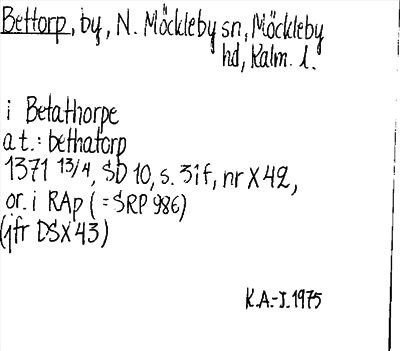 Bettorp, by, N. Möckleby sn, Möckleby
hd, Kalm. l.
i Betathorpe
at.: bethatorp
1371 13/4, SD 10, s. 31f, nr X 42,
or. i RAp (=SRP 986)
(jfr DSX 43)
K.A.-J. 1975